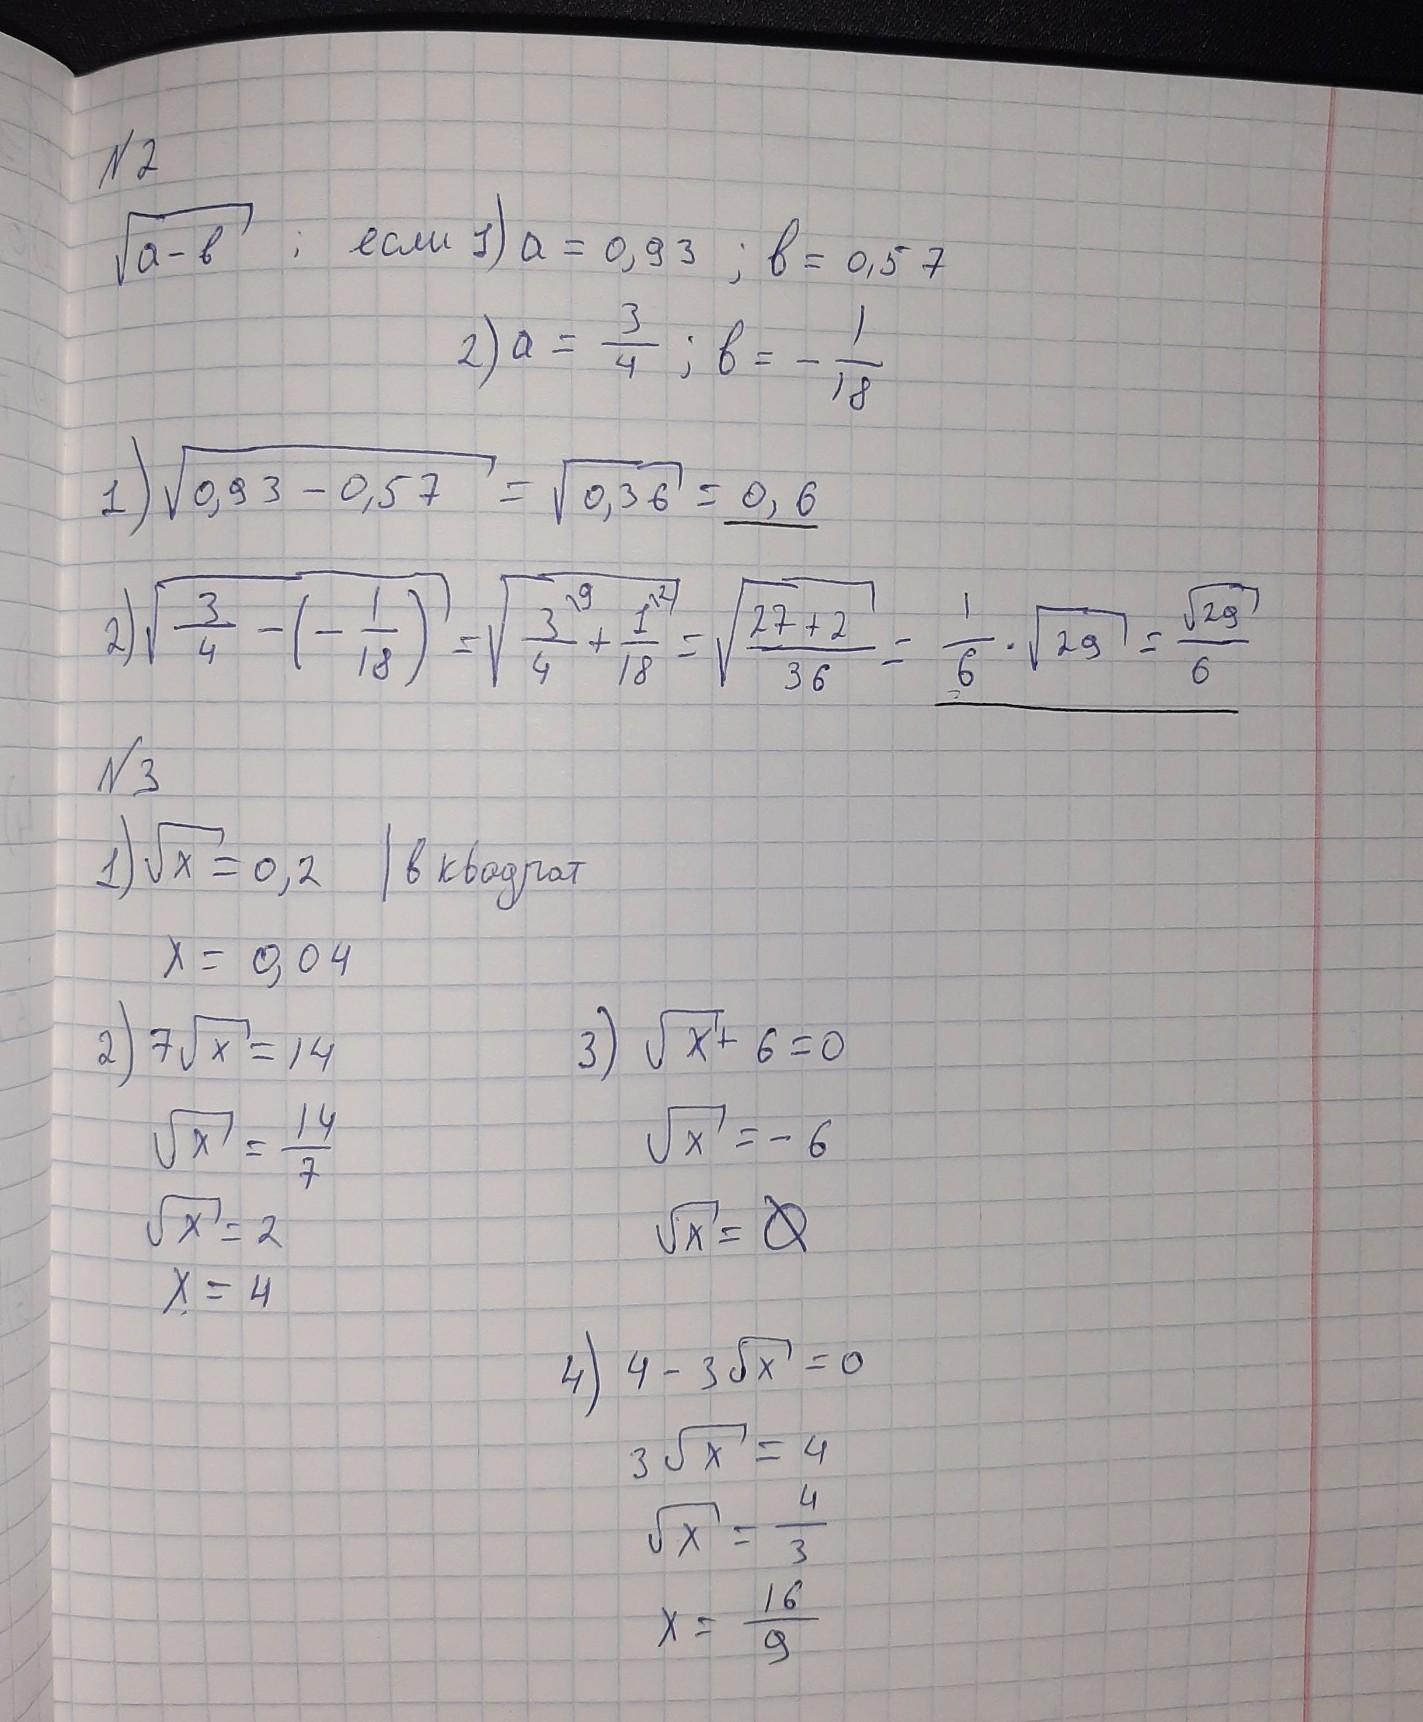 N2
√(a-b) ; если 1) a = 0,93 ; b = 0,57
2) a = 3/4 ; b = -1/18
1) √(0,93 - 0,57) = √(0,36) = 0,6
2) √(3/4 - (-1/18)) = √(3\9/4 + 1\2/18) = √((27+2)/36) = 1/6 · √29 = √29/6
N3
1) √x = 0,2 | в квадрат
x = 0,04
2) 7√x = 14
√x = 14/7
√x = 2
x = 4
3) √x + 6 = 0
√x = -6
√x = ∅
4) 4 - 3√x = 0
3√x = 4
√x = 4/3
x = 16/9